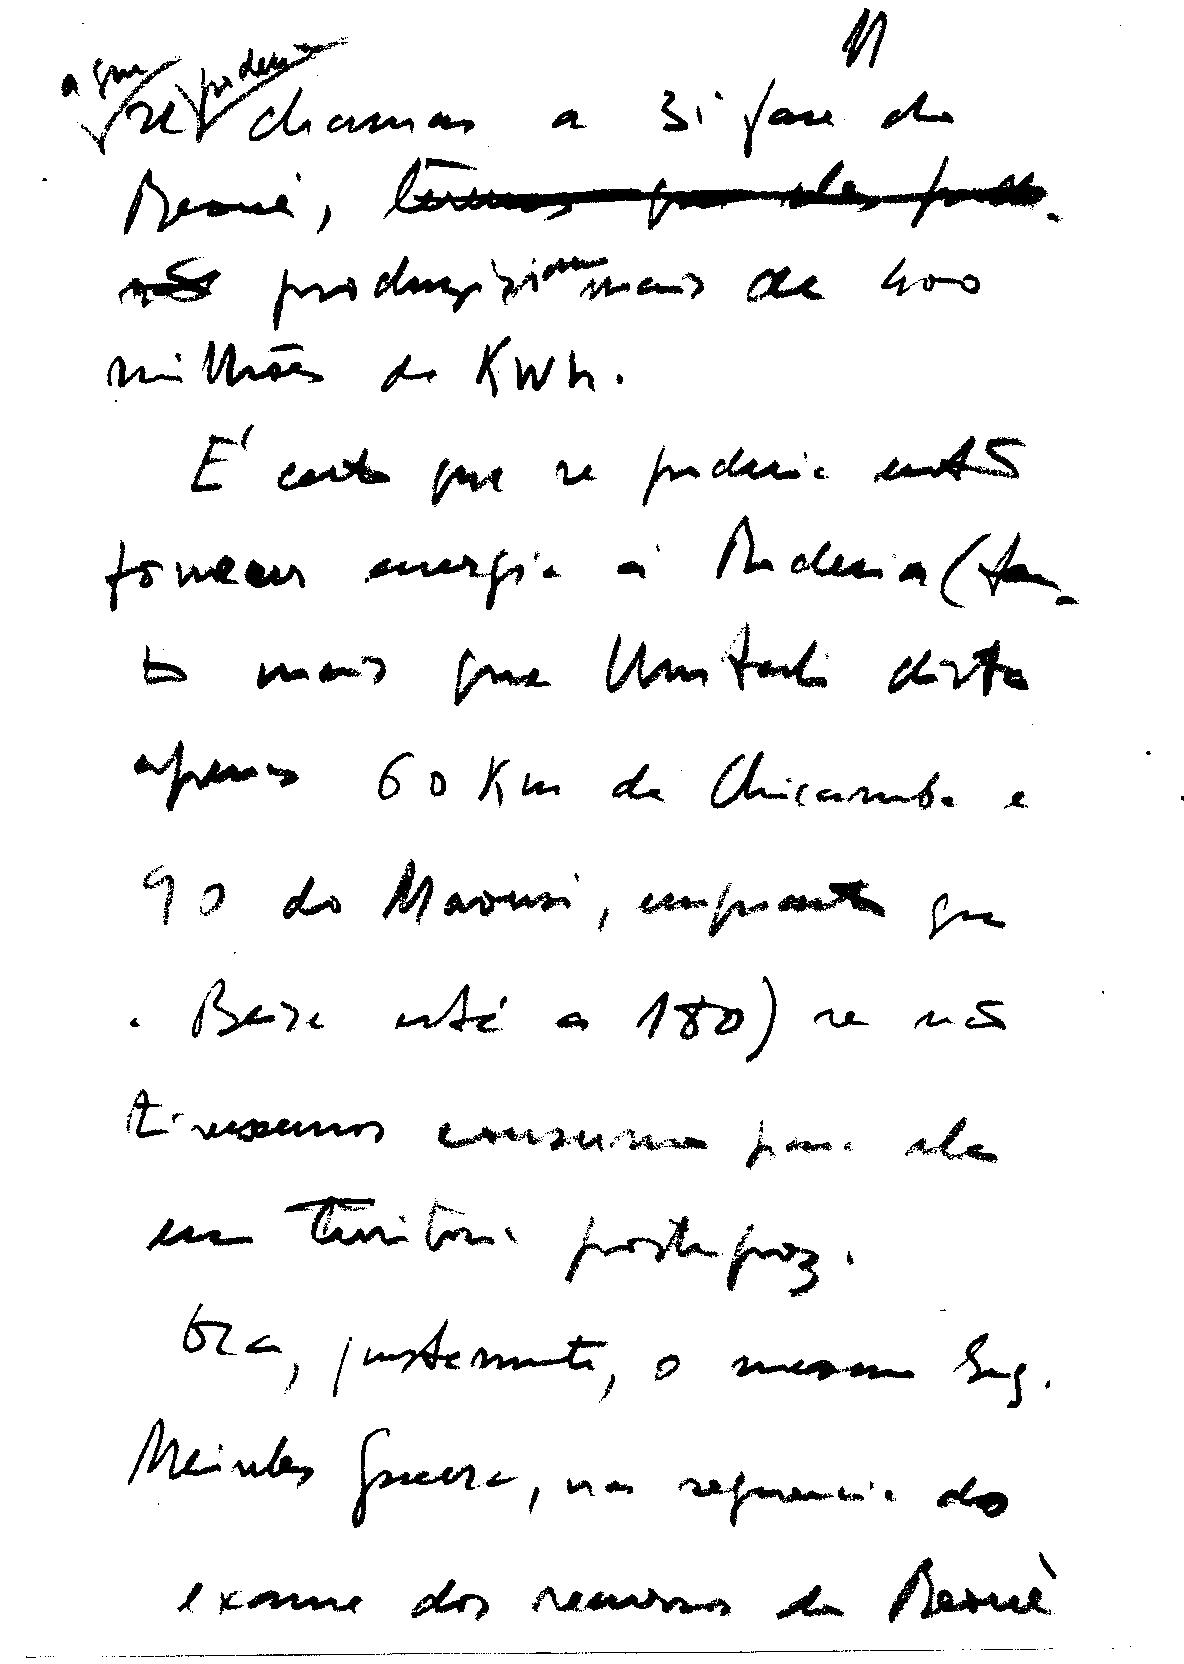 11
a que poderia
se chamar a 3ª fase do
Revuè, termos que eles pudes-
não produziriam mais de 400
milhões de KWh.
É certo que se poderia então
fornecer energia à Rodesia (tan-
to mais que Umtali dista
apenas 60 Km da Chicamba e
90 do Mavuzi, enquanto que
a Beira está a 180) se não
tivessemos consumo para ela
em território português.
Ora, justamente, o mesmo Eng.
Meireles Guerra, na sequencia do
exame dos recursos do Revuè